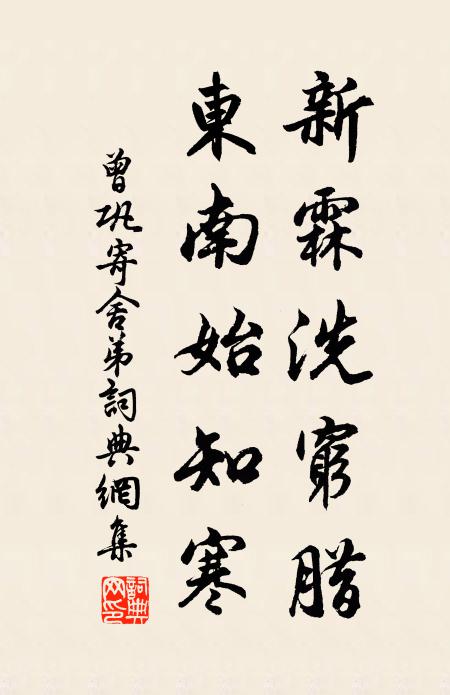 新霖洗窮腊
東南始知寒
曾巩寄舍弟詞典網集
詞典网印